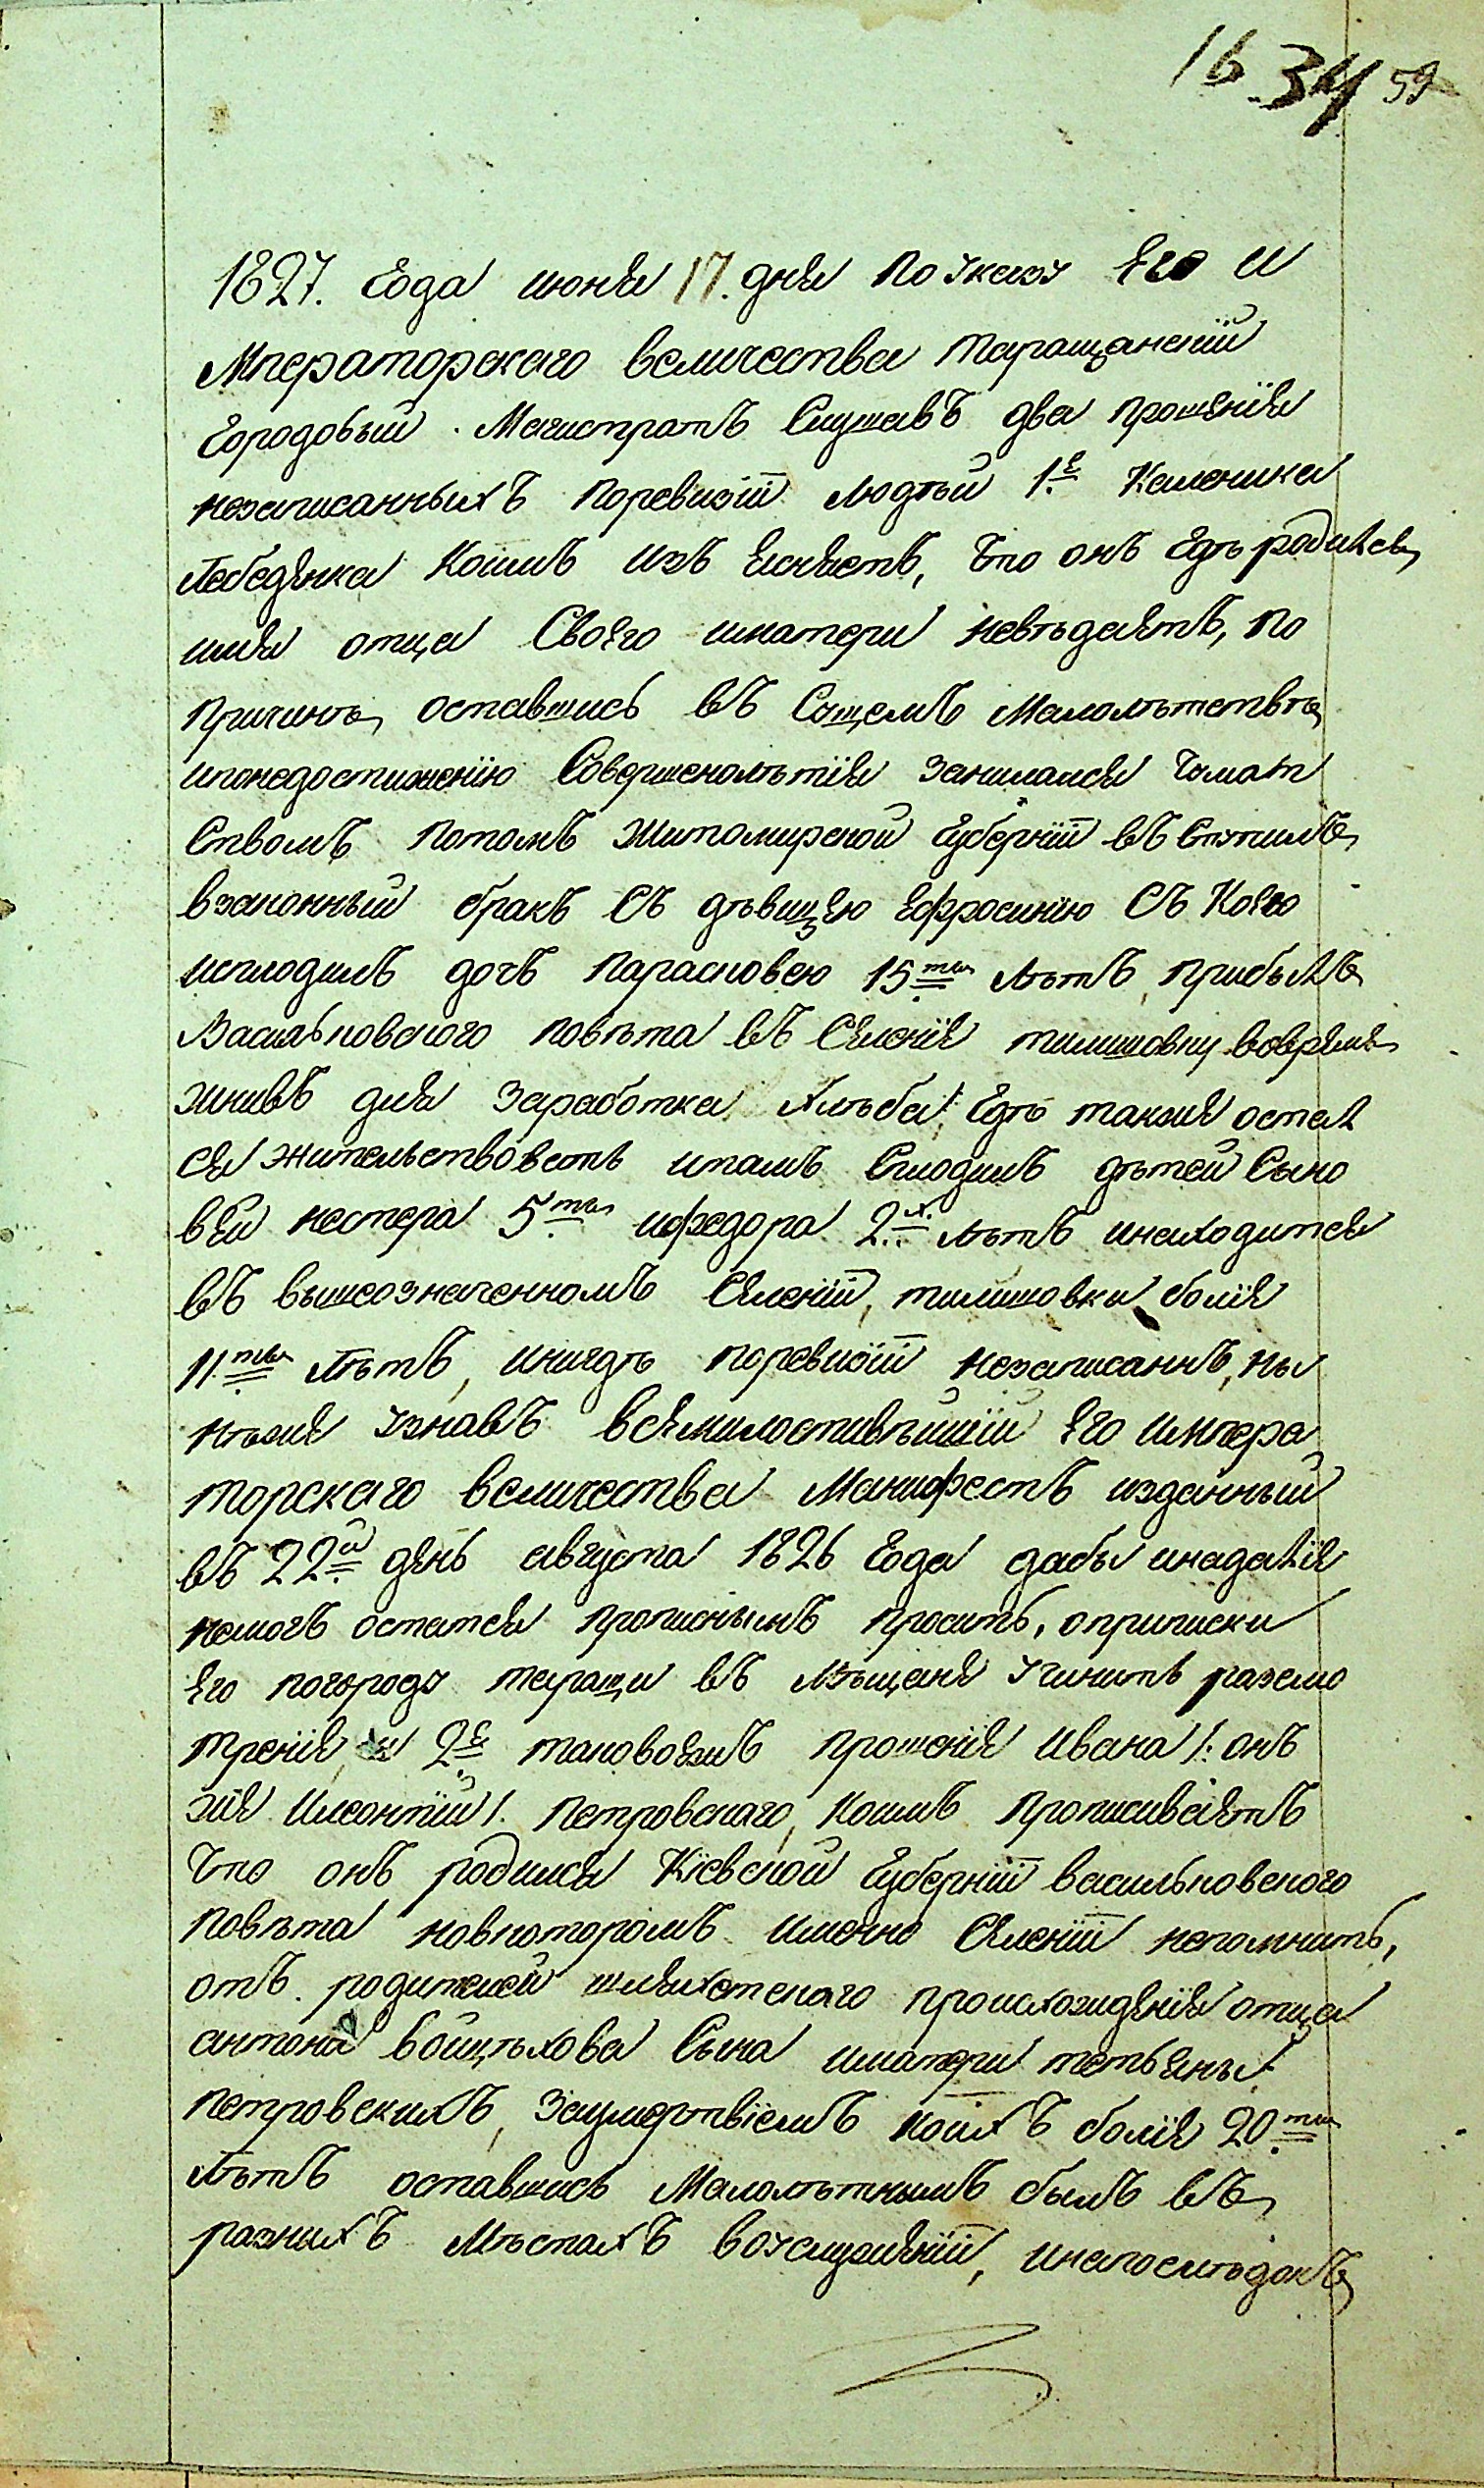 16 34 59
1827. Года июня 17. дня по указу Его и
мператорскаго величества таращанскій
городовый Магистратъ Слушавъ два прошенія
незаписанныхъ поревизіи людъй 1.е Каленика
Лебедѣнка коимъ изъясняетъ, что онъ гдѣ родился,
имя отца Своего иматери невѣдаетъ, по
причинѣ, оставшись въ Сущемъ Малолѣтствѣ
ипонедостиженію Совершенолѣтія занимался чумат
Ствомъ потомъ Житомирской губерніи въступилъ
взаконный бракъ Съ дѣвицею Ефросинію Съ Коею
исплодилъ дочъ парасковею 15ти лѣтъ, прибылъ
Васильковского повѣта въ Селенія тилишовку вовремя
жнивъ для заработка хлѣба, гдѣ также остал
ся жительствовать итамъ Сплодилъ дѣтей Сыно
вей нестера 5ти ифедора 2.х лѣтъ инаходится
въ вышеозначенномъ Селеніи, тилишовки болія
11ти лѣтъ, инигдѣ поревизіи незаписаннъ, ны
нѣжя узнавъ всямилостивѣйшій Его импера
торскаго величества Манифестъ изданный
въ 22й день августа 1826 Года дабы инадалія
немогъ остатся прописнымъ просить, оприписки
Его погороду таращи въ Мѣщаня учинить разсмо
трения, и 2е таковоежъ прошенія Ивана /: онъ
жія Илеонтій /. Петровскаго, коимъ прописиваетъ
что онъ родился Кіевской губерніи васильковского
повѣта новкоторомъ именно Селеніи непомнить,
отъ родителей шляхетскаго происхождения отца
антона войцѣхова Сына иматери тетьяны
петровскихъ, заумертвіемъ коихъ болія 20ти
лѣтъ оставшись Малолѣтнымъ былъ въ
разнихъ Мѣстахъ воуслуженіи, инапослѣдокъ